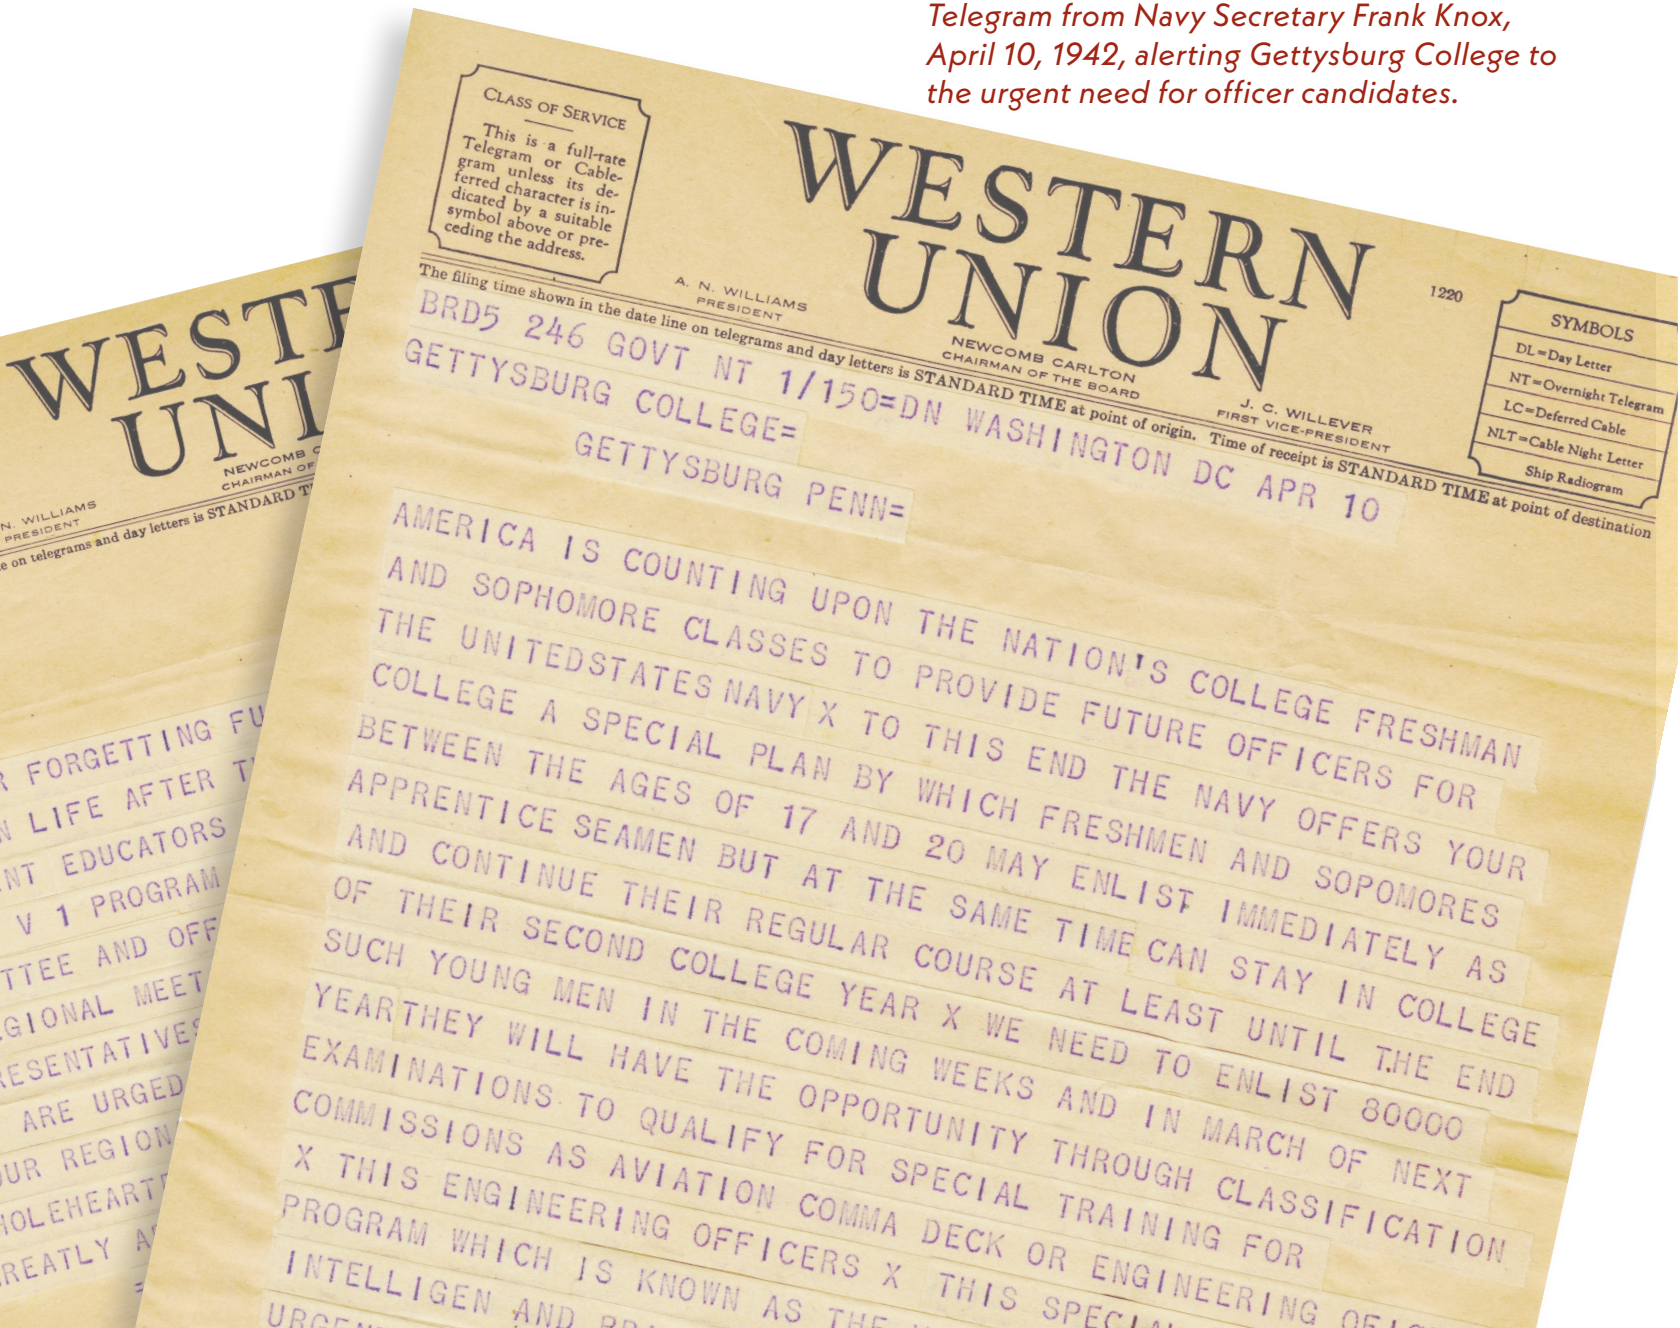 Telegram from Navy Secretary Frank Knox,
April 10, 1942, alerting Gettysburg College to
the urgent need for officer candidates.
CLASS OF SERVICE
This is a full-rate
Telegram or Cable-
gram unless its de-
ferred character is in-
dicated by a suitable
symbol above or pre-
ceding the address.
WESTERN
UNION
1220
SYMBOLS
DL=Day Letter
NT=Overnight Telegram
LC=Deferred Cable
NLT=Cable Night Letter
Ship Radiogram
A. N. WILLIAMS
PRESIDENT
NEWCOMB CARLTON
CHAIRMAN OF THE BOARD
J. C. WILLEVER
FIRST VICE-PRESIDENT
The filing time shown in the date line on telegrams and day letters is STANDARD TIME at point of origin. Time of receipt is STANDARD TIME at point of destination
BRD5 246 GOVT NT 1/150=DN WASHINGTON DC APR 10
GETTYSBURG COLLEGE=
GETTYSBURG PENN=
AMERICA IS COUNTING UPON THE NATION'S COLLEGE FRESHMAN
AND SOPHOMORE CLASSES TO PROVIDE FUTURE OFFICERS FOR
THE UNITEDSTATES NAVY X TO THIS END THE NAVY OFFERS YOUR
COLLEGE A SPECIAL PLAN BY WHICH FRESHMEN AND SOPOMORES
BETWEEN THE AGES OF 17 AND 20 MAY ENLIST IMMEDIATELY AS
APPRENTICE SEAMEN BUT AT THE SAME TIME CAN STAY IN COLLEGE
AND CONTINUE THEIR REGULAR COURSE AT LEAST UNTIL THE END
OF THEIR SECOND COLLEGE YEAR X WE NEED TO ENLIST 80000
SUCH YOUNG MEN IN THE COMING WEEKS AND IN MARCH OF NEXT
YEARTHEY WILL HAVE THE OPPORTUNITY THROUGH CLASSIFICATION
EXAMINATIONS TO QUALIFY FOR SPECIAL TRAINING FOR
COMMISSIONS AS AVIATION COMMA DECK OR ENGINEERING
X THIS ENGINEERING OFFICERS X THIS SPECIAL
PROGRAM WHICH IS KNOWN AS THE
INTELLIGEN AND
WESTE
UNI
NEWCOMB
CHAIRMAN OF
N. WILLIAMS
PRESIDENT
on telegrams and day letters is STANDARD
FORGETTING FU
LIFE AFTER
NT EDUCATORS
V 1 PROGRAM
TTEE AND OFF
GIONAL MEET
RESENTATIVES
ARE URGED
OUR REGION
HOLEHEART
REATLY